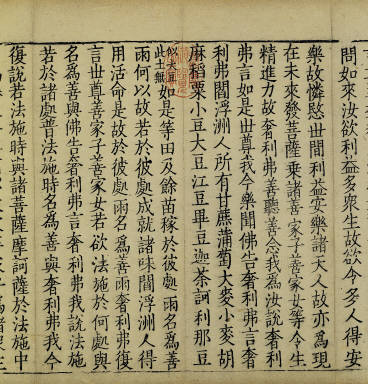 問如來汝欲利益多衆生故欲令多人得安
樂故憐愍世間利益安樂諸天人故亦為現
在未來發菩薩乘諸善家子善家女等令生
精進力故奢利弗善聽善念我為汝說奢利
弗言如是世尊我今樂聞佛告奢利弗言奢
利弗閻浮洲人所有甘蔗蒲萄大麥小麥胡
麻稻粟小豆大豆江豆畢豆迦茶訶利那豆
似大豆此土無如是等田及餘苗稼於彼處雨名為善
雨何以故若於彼處成就諸味閻浮洲人得
用活命是故於彼處雨名為善雨奢利弗復
言世尊善家子善家女若欲法施於何處與
名為善與佛告奢利弗言奢利弗我說法施
若於諸處普法施時名為善與奢利弗我今
復說若法施時與諸菩薩摩訶薩於法施中